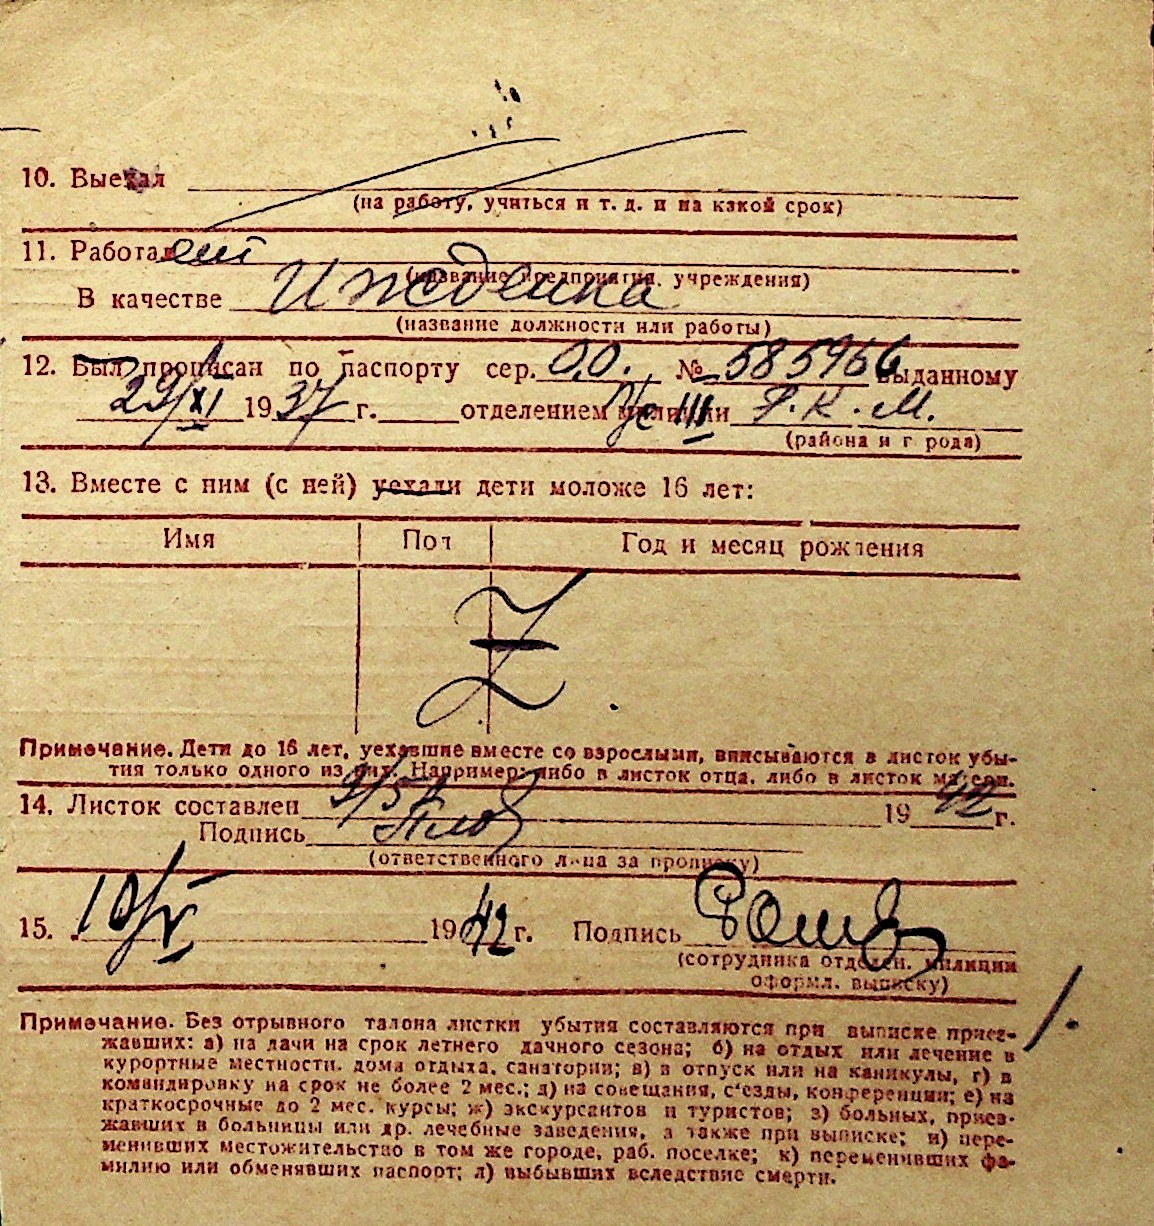 10. Выехал
(на работу, учиться и т. д. и на какой срок)
11. Работал
(название предприятия, учреждения)
В качестве Иждевка
(название должности или работы)
12. Был прописан по паспорту сер. О.О. № 585966 выданному
29/XI 1937 г. отделением милиции III Р.К.М.
(района и г рода)
13. Вместе с ним (с ней) уехали дети моложе 16 лет:
Имя Пол Год и месяц рождения
Z
Примечание. Дети до 16 лет, уехавшие вместе со взрослыми, вписываются в листок убы-
тия только одного из них. Например: либо в листок отца, либо в листок матери.
14. Листок составлен 9/5 1942 г.
Подпись
(ответственного лица за прописку)
15. 10/V 1942 г. Подпись
(сотрудника отделен. милиции
оформл. выписку)
Примечание. Без отрывного талона листки убытия составляются при выписке приез-
жавших: а) на дачи на срок летнего дачного сезона; б) на отдых или лечение в
курортные местности, дома отдыха, санатории; в) в отпуск или на каникулы, г) в
командировку на срок не более 2 мес.; д) на совещания, с'езды, конференции; е) на
краткосрочные до 2 мес. курсы; ж) экскурсантов и туристов; з) больных, приез-
жавших в больницы или др. лечебные заведения, а также при выписке; и) пере-
менивших местожительство в том же городе, раб. поселке; к) переменивших фа-
милию или обменявших паспорт; л) выбывших вследствие смерти.